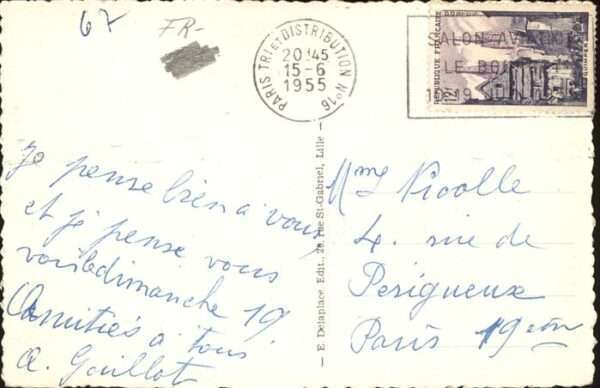 67
FR-
PARIS TRI et DISTRIBUTION No 16
20H45
15-6
1955
SALON AV
LE BO
REPUBLIQUE FRANÇAISE
12F
Je pense bien a vous
et je pense vous
voir le dimanche 19
Amitiés a tous
A. Gaillot
— E. Delaplace, Edit., 26, rue St-Gabriel, Lille —
Mme Nicolle
4. rue de
Perigueux
Paris 19 ème